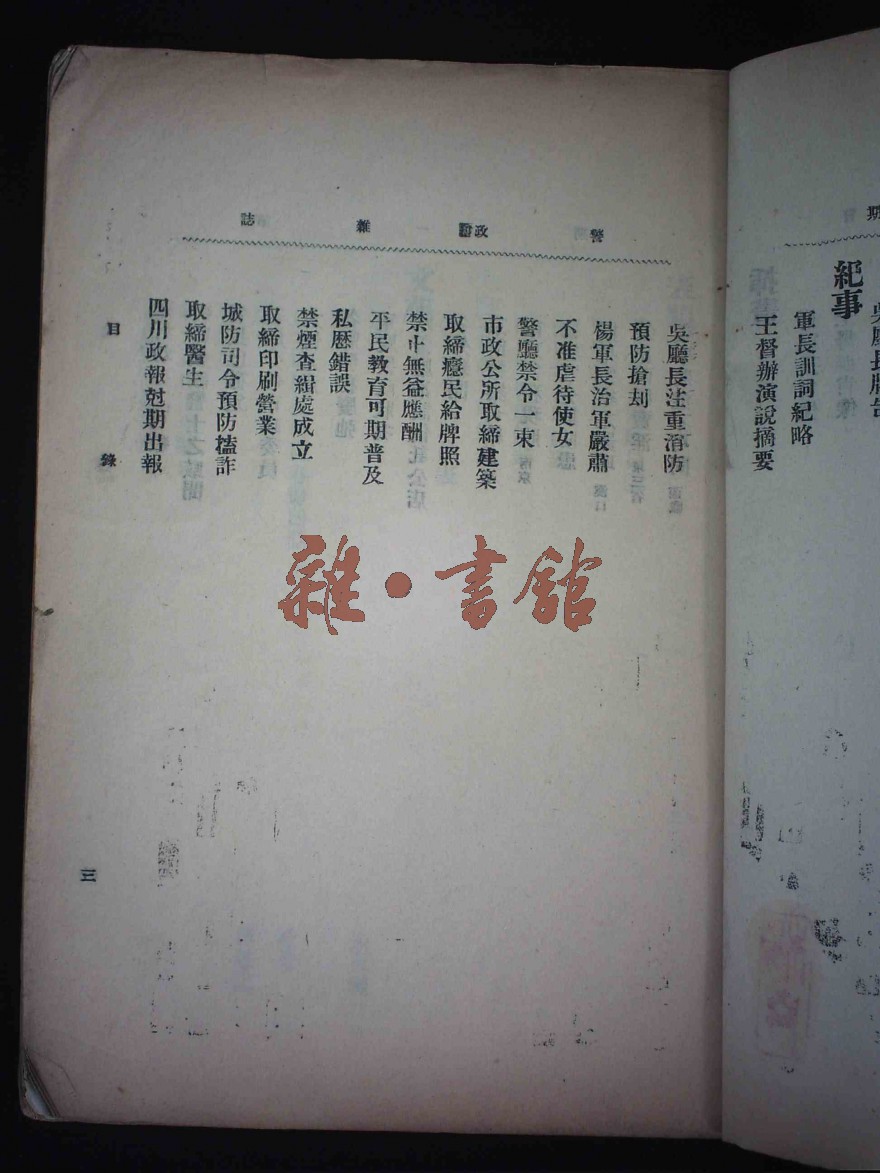 期
吳廳長牌告
紀事
軍長訓詞紀略
王督辦演說摘要
警政雜誌
吳廳長注重消防
預防搶刦
楊軍長治軍嚴肅
不准虐待使女
警廳禁令一束
市政公所取締建築
取締癮民給牌照
禁止無益應酬
平民教育可期普及
私歷錯誤
禁煙查緝處成立
取締印刷營業
城防司令預防榼詐
取締醫生
四川政報尅期出報
目錄
三
雜·書館